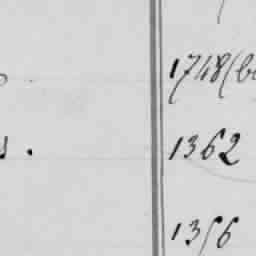 1748 (b
s. 1362
1356